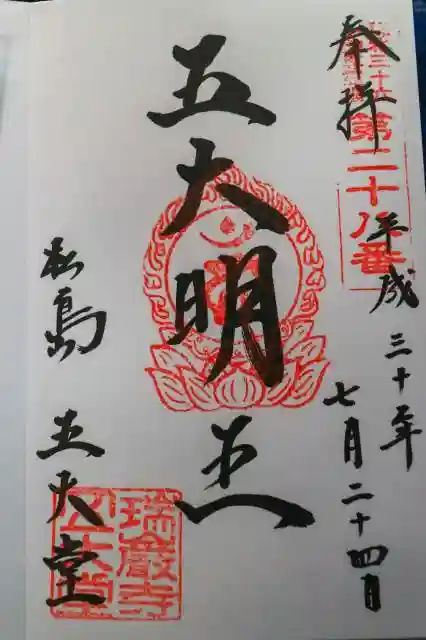 奉拝
第二十八番
平成三十年
七月二十四日
五大明王
松島
五大堂
瑞巌寺
五大堂